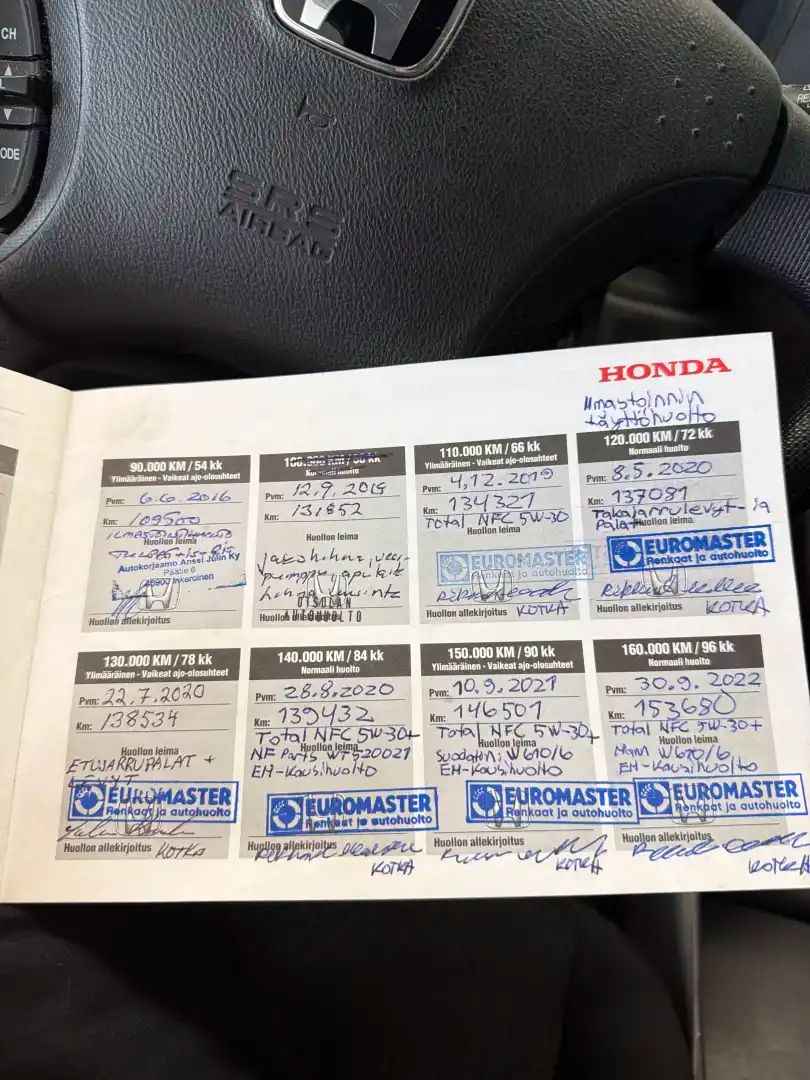 CH
ODE
SRS
AIRBAG
HONDA
Ilmastoinnin
täyttöhuolto
90.000 KM / 54 kk
Ylimääräinen - Vaikeat ajo-olosuhteet
Pvm: 6.6.2016
Km: 109500
Huollon leima
Autokorjaamo Anssi Julin Ky
Päätie 6
46900 Inkeroinen
Huollon allekirjoitus
Normaali huolto
Pvm: 12.9.2019
Km: 131852
Huollon leima
Jakohihna, vesi-
pumppu, apulait
hihna uusinta
OTSOLAN
AUTOHUOLTO
Huollon allekirjoitus
110.000 KM / 66 kk
Ylimääräinen - Vaikeat ajo-olosuhteet
Pvm: 4.12.2019
Km: 134327
Total NFC 5W-30
Huollon leima
EUROMASTER
Renkaat ja autohuolto
Huollon allekirjoitus KOTKA
120.000 KM / 72 kk
Normaali huolto
Pvm: 8.5.2020
Km: 137081
Takajarrulevyt- ja
Palat
Huollon leima
EUROMASTER
Renkaat ja autohuolto
Huollon allekirjoitus KOTKA
130.000 KM / 78 kk
Ylimääräinen - Vaikeat ajo-olosuhteet
Pvm: 22.7.2020
Km: 138534
Huollon leima
ETUJARRUPALAT +
LEVYT
EUROMASTER
Renkaat ja autohuolto
Huollon allekirjoitus KOTKA
140.000 KM / 84 kk
Normaali huolto
Pvm: 28.8.2020
Km: 139432
Total NFC 5W-30+
Huollon leima
NF Parts WT520021
EM-Kausihuolto
EUROMASTER
Renkaat ja autohuolto
Huollon allekirjoitus
KOTKA
150.000 KM / 90 kk
Ylimääräinen - Vaikeat ajo-olosuhteet
Pvm: 10.9.2021
Km: 146501
Total NFC 5W-30+
Huollon leima
Suodatin: W610/6
EM-Kausihuolto
EUROMASTER
Renkaat ja autohuolto
Huollon allekirjoitus
KOTKA
160.000 KM / 96 kk
Normaali huolto
Pvm: 30.9.2022
Km: 153680
Total NFC 5W-30+
Huollon leima
Mann W610/6
EM-Kausihuolto
EUROMASTER
Renkaat ja autohuolto
Huollon allekirjoitus
KOTKA